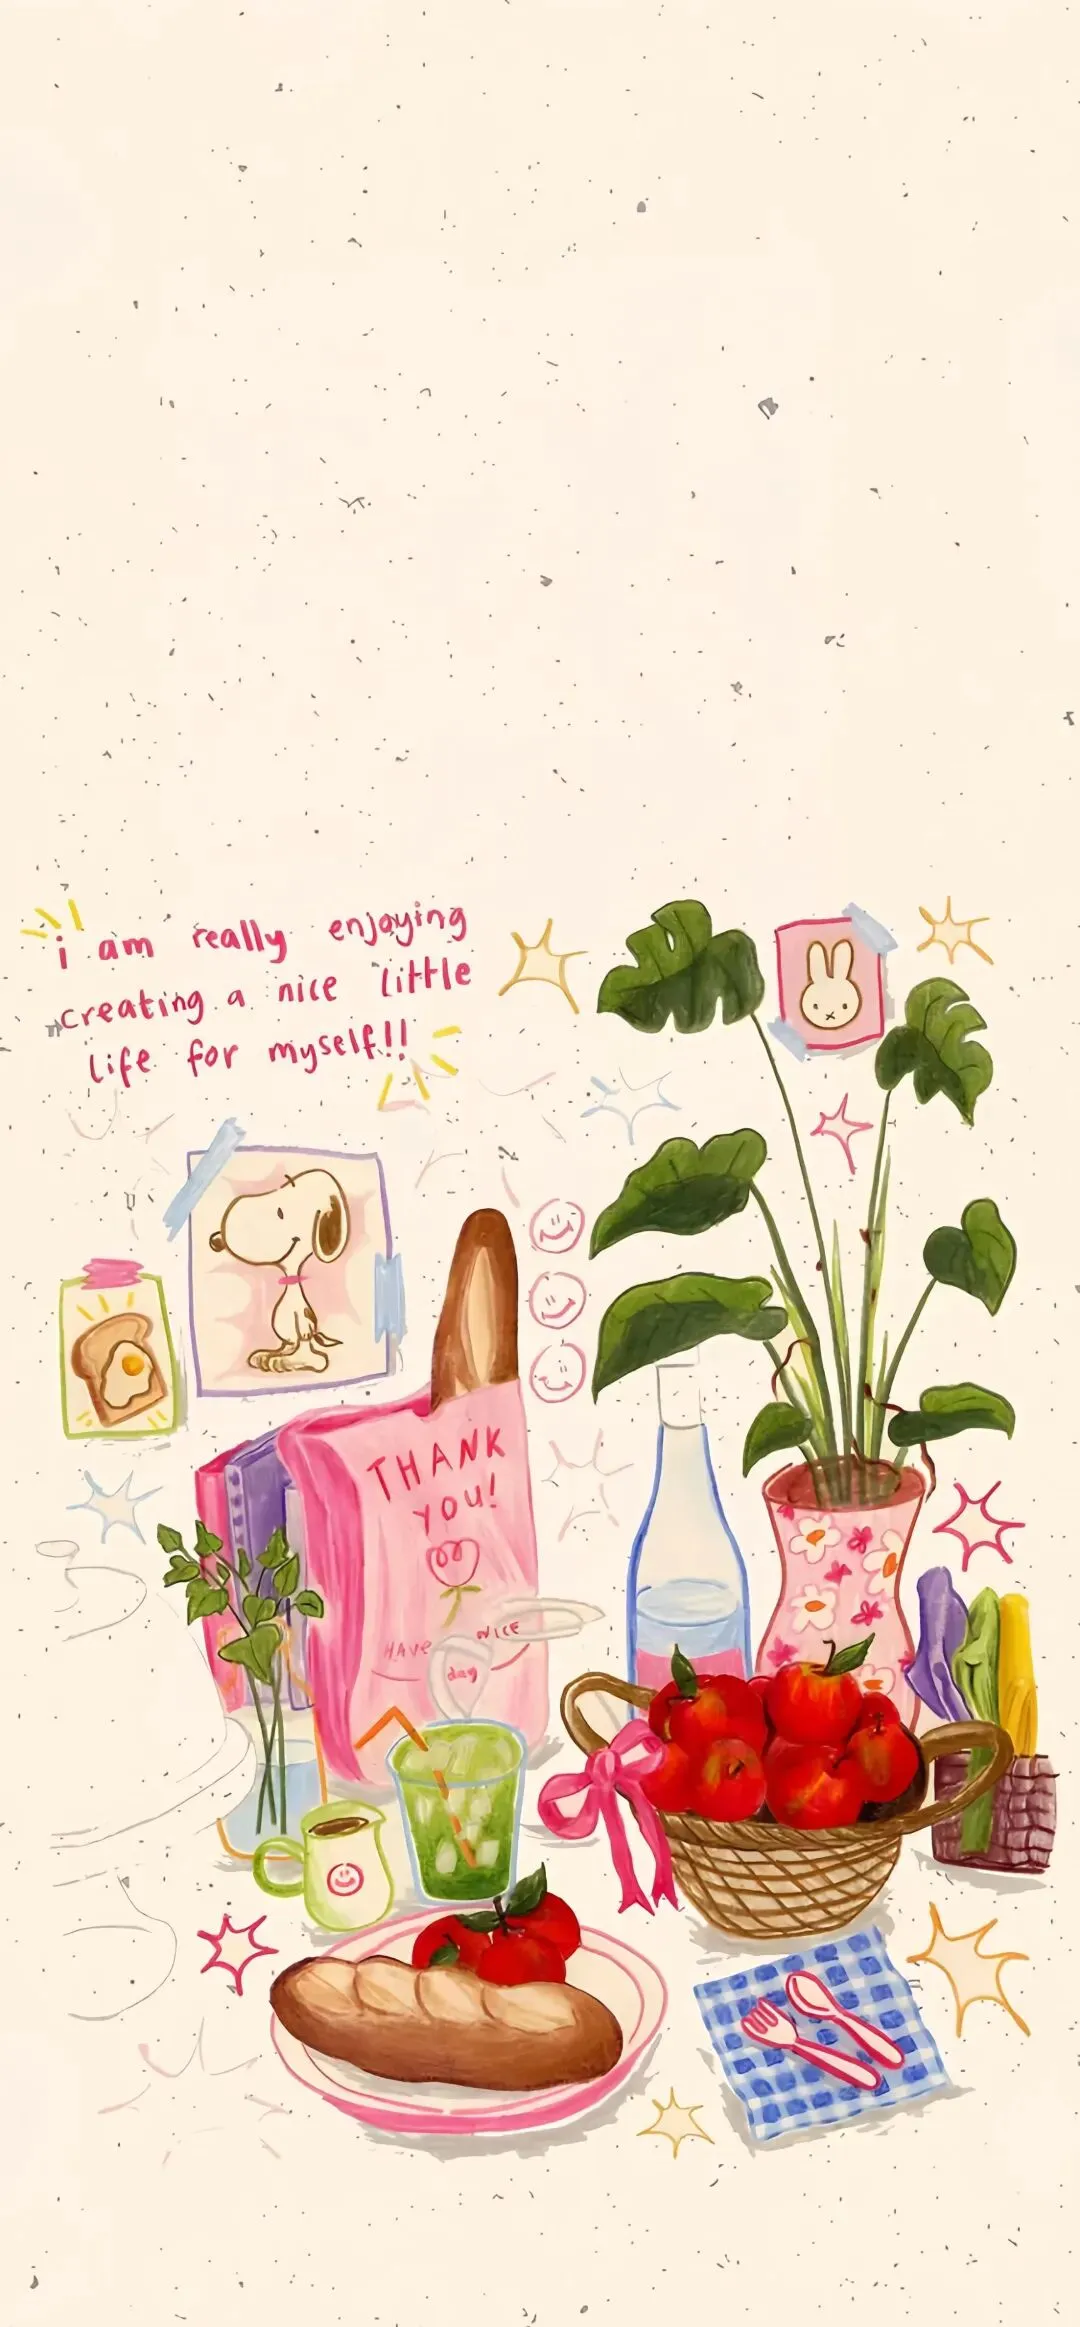 i am really enjoying
creating a nice little
life for myself!!
THANK
YOU!
HAVE NICE
day